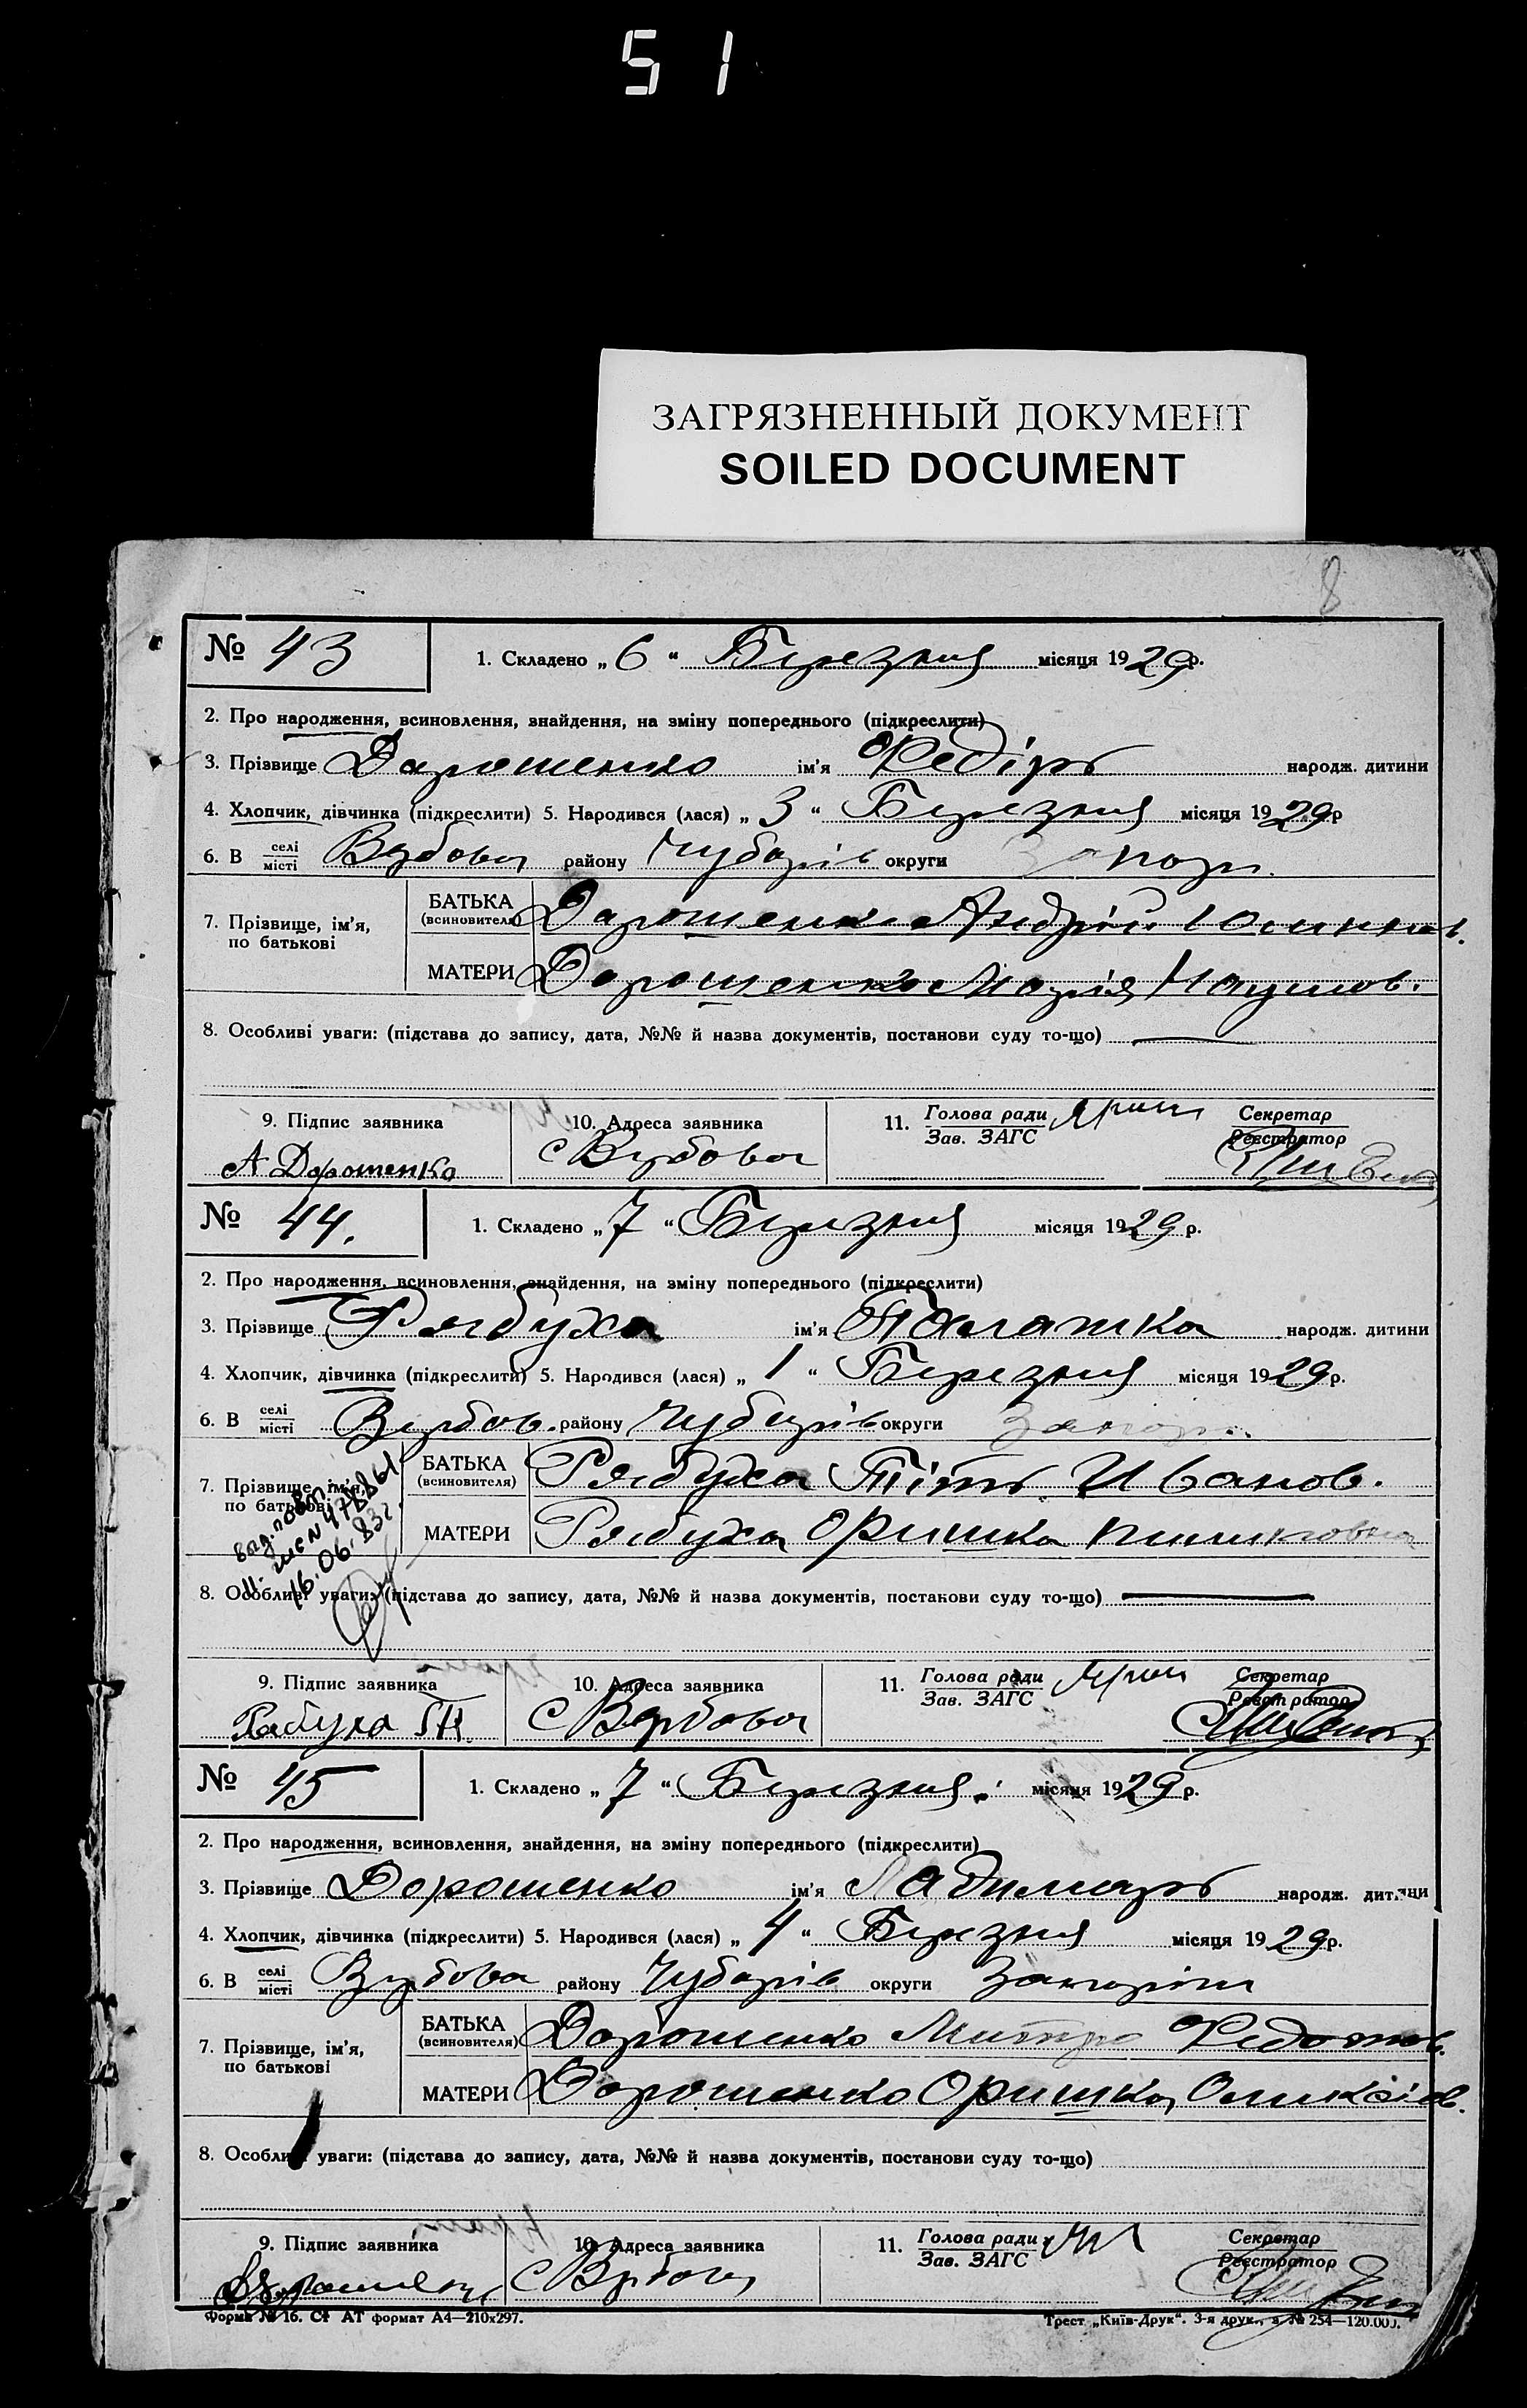 51
ЗАГРЯЗНЕННЫЙ ДОКУМЕНТ
SOILED DOCUMENT
8
№ 43
1. Складено „ 6 “ Березня місяця 1929 р.
2. Про народження, всиновлення, знайдення, на зміну попереднього (підкреслити)
3. Прізвище Дарошенко ім'я Федіръ народж. дитини
4. Хлопчик, дівчинка (підкреслити) 5. Народився (лася) „ 3 “ Березня місяця 1929 р
6. В селі місті Вербова району Чубарів округи Запор.
7. Прізвище, ім'я, по батькові
БАТЬКА (всиновителя) Дарошенко Андрій
МАТЕРИ Дорошенко Марія Наумов.
8. Особливі уваги: (підстава до запису, дата, №№ й назва документів, постанови суду то-що)
9. Підпис заявника 10. Адреса заявника 11. Голова ради Зав. ЗАГС Секретар Реєстратор
А Дорошенко с Вербова
№ 44.
1. Складено „ 7 “ Березня місяця 1929 р.
2. Про народження, всиновлення, знайдення, на зміну попереднього (підкреслити)
3. Прізвище Рябуха ім'я Палажка народж. дитини
4. Хлопчик, дівчинка (підкреслити) 5. Народився (лася) „ 1 “ Березня місяця 1929 р.
6. В селі місті Вербов. району Чубарів округи Запор.
7. Прізвище, ім'я, по батькові
БАТЬКА (всиновителя) Рябуха Тітъ Иванов.
МАТЕРИ Рябуха Оришка
16.06.83г.
8. Особливі уваги: (підстава до запису, дата, №№ й назва документів, постанови суду то-що)
9. Підпис заявника 10. Адреса заявника 11. Голова ради Зав. ЗАГС Секретар Реєстратор
Рабуха с Вербова
№ 45
1. Складено „ 7 “ Березня місяця 1929 р.
2. Про народження, всиновлення, знайдення, на зміну попереднього (підкреслити)
3. Прізвище Дорошенко ім'я народж. дитини
4. Хлопчик, дівчинка (підкреслити) 5. Народився (лася) „ 4 “ Березня місяця 1929 р.
6. В селі місті Вербова району Чубарів округи Запоріж
7. Прізвище, ім'я, по батькові
БАТЬКА (всиновителя) Дорошенко Митро Федотов.
МАТЕРИ Дорошенко Оришка Оликсіів.
8. Особливі уваги: (підстава до запису, дата, №№ й назва документів, постанови суду то-що)
9. Підпис заявника 10. Адреса заявника 11. Голова ради Зав. ЗАГС Секретар Реєстратор
с Вербова
Форма № 16. Ст АТ формат А4—210x297.
Трест „Київ-Друк“. 3-я друк., з. № 254—120.000.